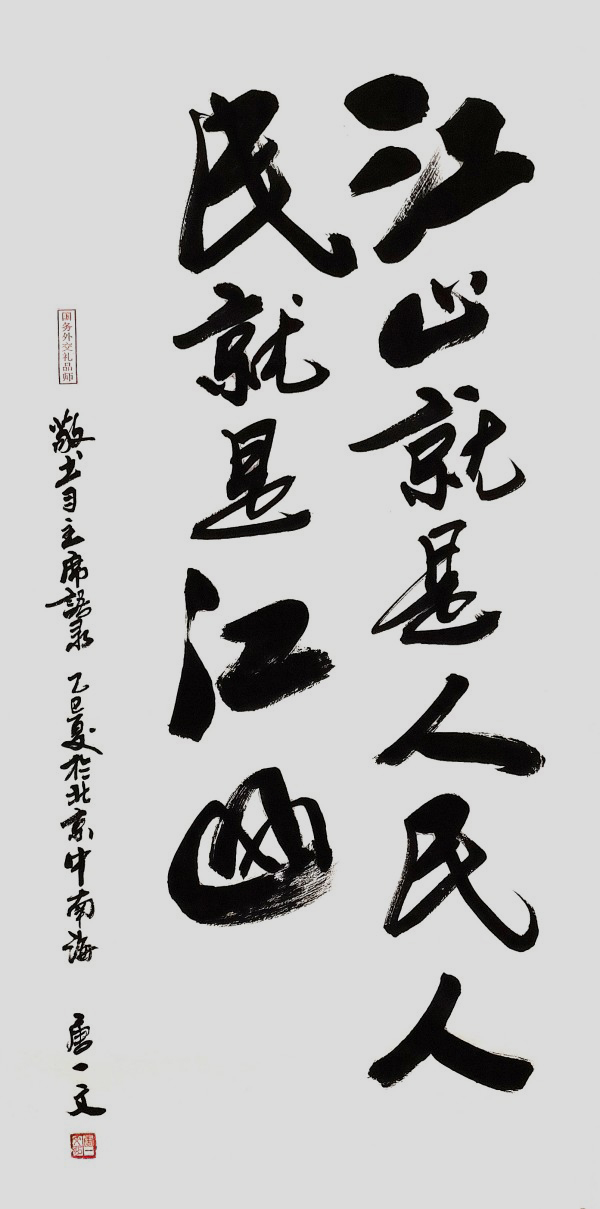 江山就是人民人
民就是江山
国务外交礼品师
敬书习主席語录 乙巳夏於北京中南海
唐一文